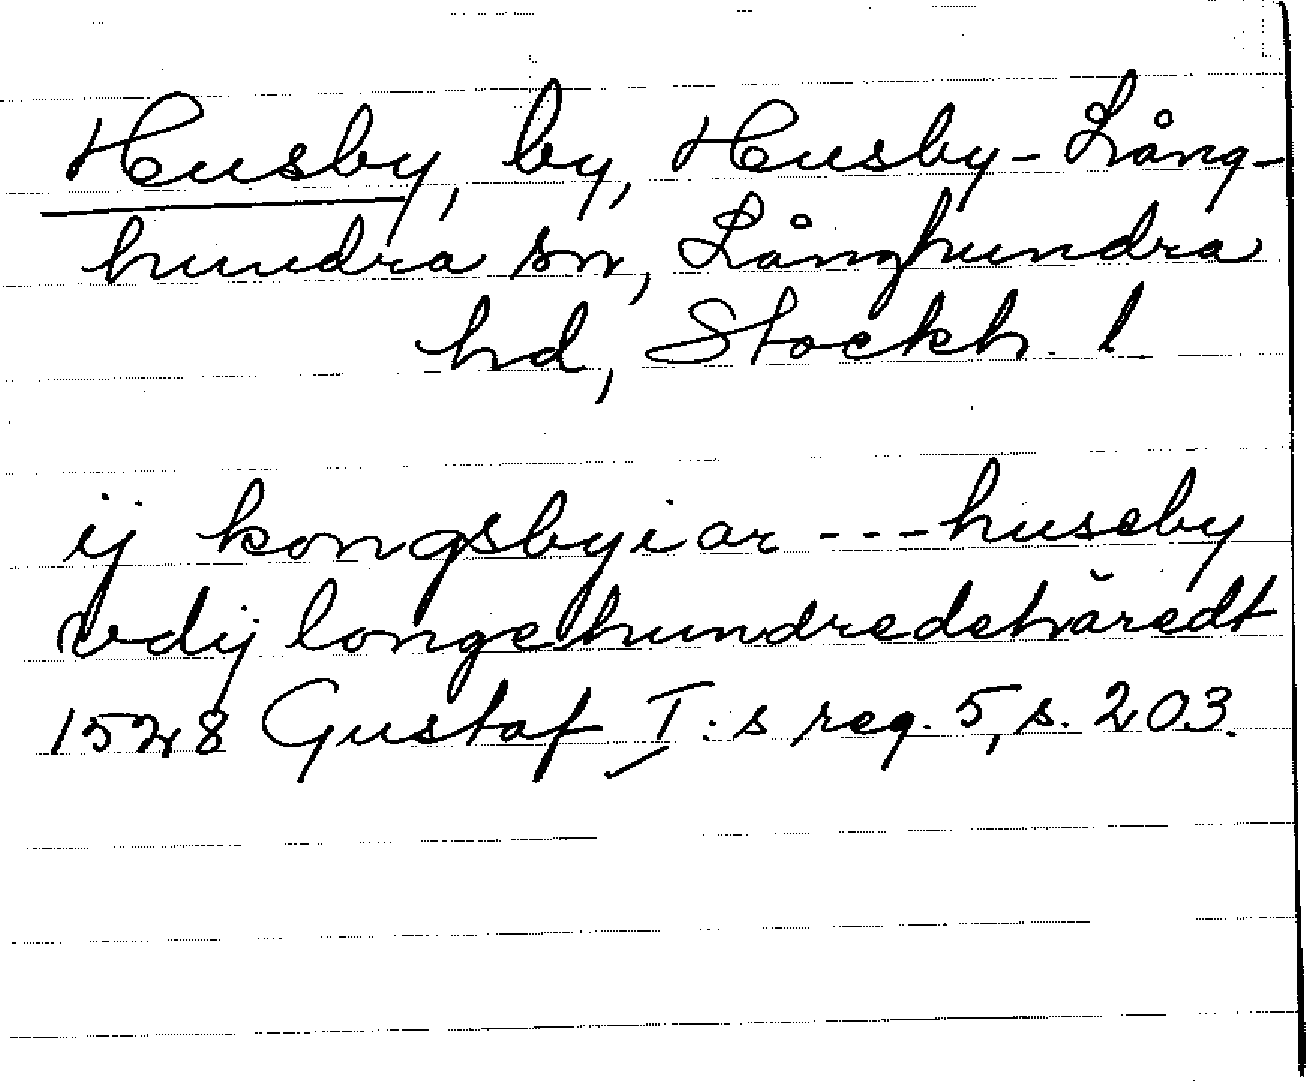 Husby, by, Husby-Lång-
hundra sn, Långhundra
hd, Stockh. l
ij kongsbyiar --- huseby
vdij longehundredehäredt
1528 Gustaf I:s reg. 5, s. 203.